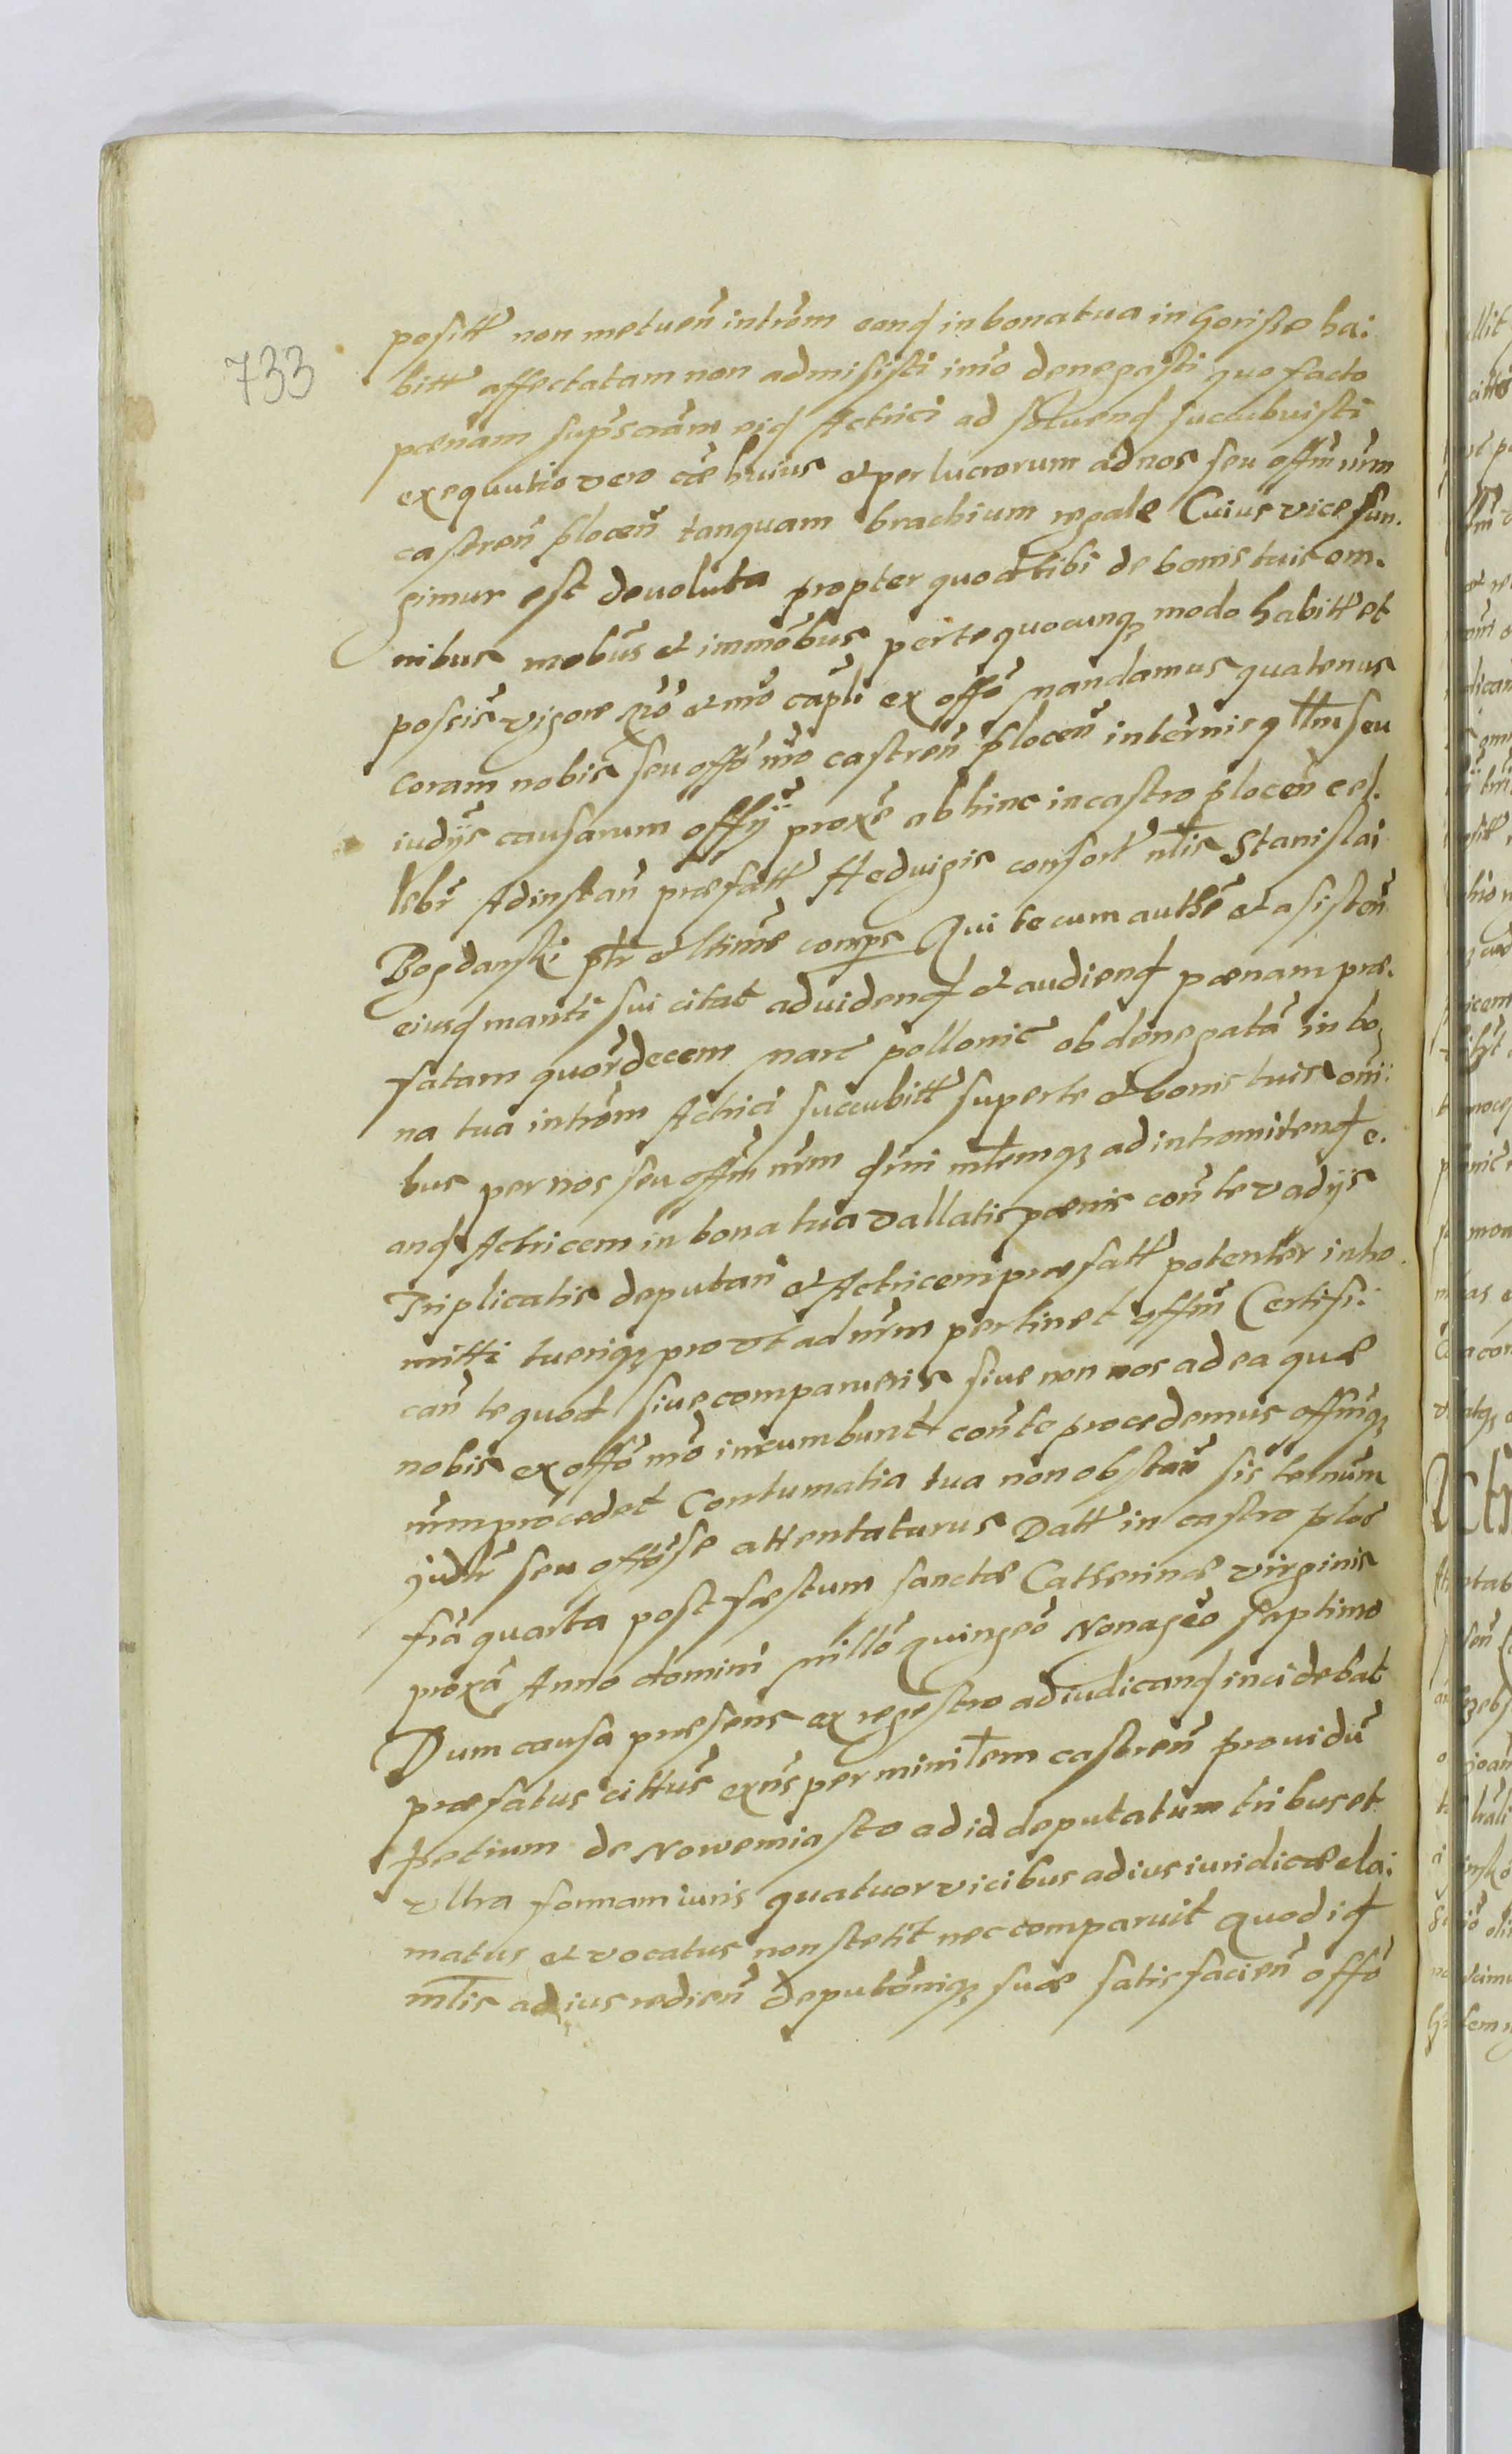 733
positt non metuen̄ intrōm eanq̨ in bona tua in Gorisze ha:
bitt affectatam non admisisti imō denegasti quo facto
pœnam suprscrām eiq̨ Actrici ad soluenq̨ succubuisti
exequutio vero cāe huius et per lucrorum ad nos seu offm̄ nrm̄
castren̄ plocen̄ tanquam brachium regale Cuius vice fun.
gimur est deuoluta propter quod tibi de bonis tuis om.
nibus mobūs et immōbus per te quocunq3 modo habitt et
possis̄ vigore et nrō capli ex offō mandamus quatenus
coram nobis seu offō nrō castren̄ plocen̄ in termis q ttm̄ seu
iudijs causarum offij proxe ab hinc in castro plocen̄ cel.
lebr̄ Ad instan̄ præfatt Heduigis consort nłis Stanislai
Bogdanski ptr et ltime comps Qui te cum authe et asisten̄
eiusq̨ mariti sui citat ad videnq̨ et audienq̨ pœnam præ.
fatam quordecem marc pollonic ob denegatā in bo
na tua intrōm Actrici succubitt super te et bonis tuis oni:
bus per nos seu offm̄ nrm̄ mtemq3 ad intromitenq̨ e.
anq̨ Actricem in bona tua vallatis pœnis con̄ te vadijs
Triplicatis deputan̄ et Actricem præfatt potenter intro
mitti tueriq3 pro vt ad nrm̄ pertinet offm̄ Certifi:
can̄ te quod siue comparueris siue non nos ad ea quæ
nobis ex offō nrō incumbunt con̄ te procedemus offmq3
nrm̄ procedet Contumatia tua non obstan̄ sis ternum
judr̄ seu offōse attentaturus Datt in castro ploc
friā quarta post fæstum sanctæ Catherinæ virginis
proxā Anno domini millō quingeō Nonageō Septimo
Dum causa præsens ex regestro adiudicanq̨ incidebat
præfatus cittus exn̄s per minitem castren̄ prouidū
petrum de Nowemiasto ad id deputatum tribus et
vltra formam iuris quatuor vicibus ad ius iuridicæ cla:
matus et vocatus non stetit nec comparuit Quod iq̨
mtis ad ius redien̄ deputōniq3 suæ satisfacien̄ offō